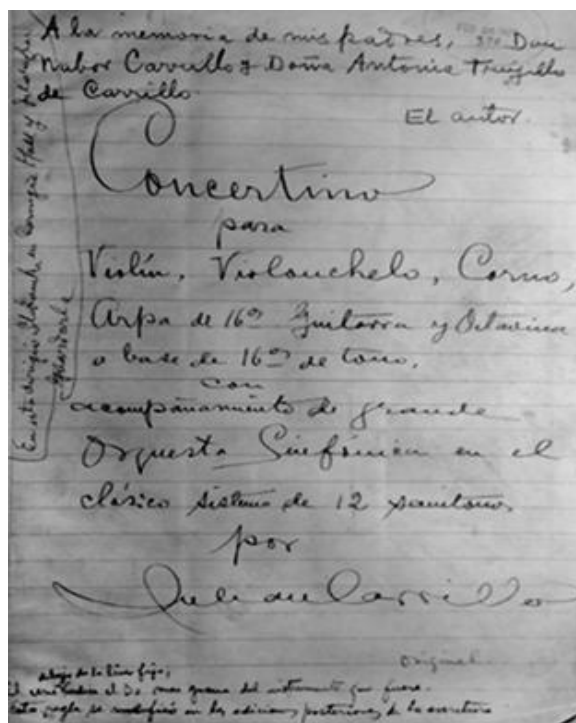 A la memoria de mis padres, Don
Nabor Carrillo y Doña Antonia Trujillo
de Carrillo
El autor.
Concertino
para
Violín, Violonchelo, Corno,
Arpa de 16os Guitarra y Octavina
a base de 16os de tono,
con
acompañamiento de grande
Orquesta Sinfónica en el
clásico sistema de 12 semitonos
por
Julian Carrillo
Original
abajo de la línea fija;
El cero indica el Do mas grave del instrumento que fuere.
Esta regla se modificó en las ediciones posteriores de la escritura
en Carnegie Hall y